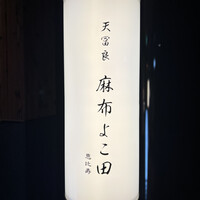 天冨良
麻布よこ田
恵比寿